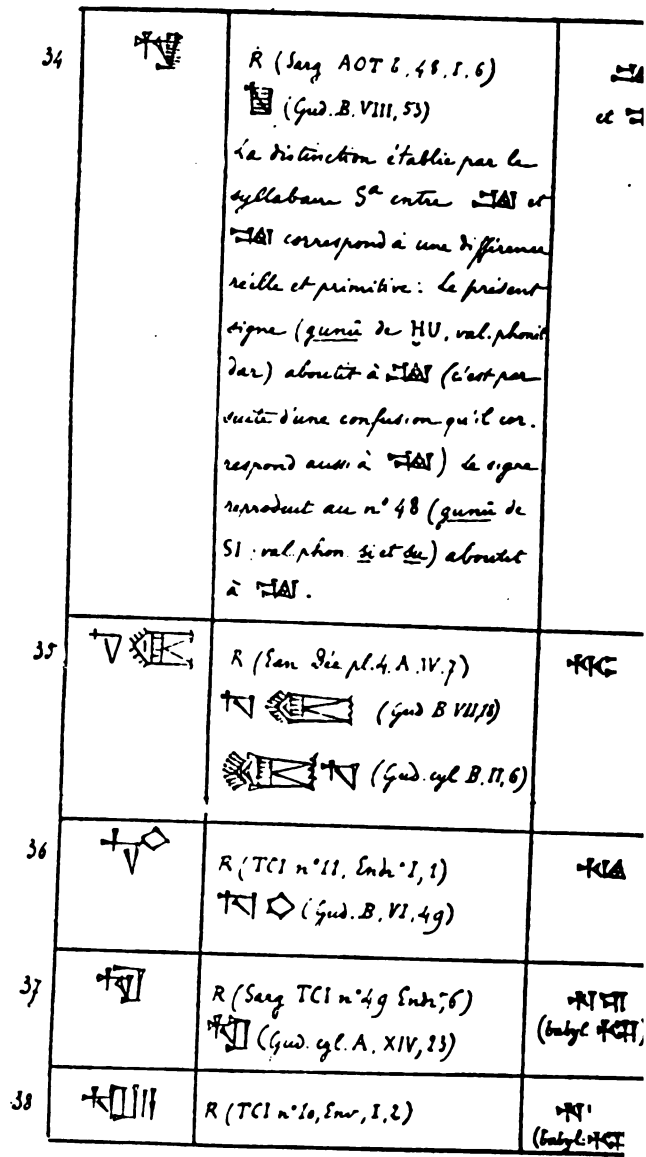 34
R (Sarg AOT b, 48, I, 6)
(Gud. B. VIII, 53)
et
La distinction établie par le
syllabaire Sª entre et
correspond à une différence
réelle et primitive : le présent
signe (gunū de ḪU, val. phonét
dar) aboutit à (c'est par
suite d'une confusion qu'il cor-
respond aussi à ) Le signe
reproduit au n° 48 (gunū de
SI : val. phon. si et su) aboutit
à .
35
R (Ean Déc pl. 4. A. IV. 7)
(Gud B VII, 18)
(Gud. cyl B, II, 6)
36
R (TCI n° 11, I, 1)
(Gud. B. VI, 49)
37
R (Sarg TCI n° 49 6)
(babyl. )
(Gud. cyl. A, XIV, 23)
38
R (TCI n° 10, Env, I, 2)
(babyl. )